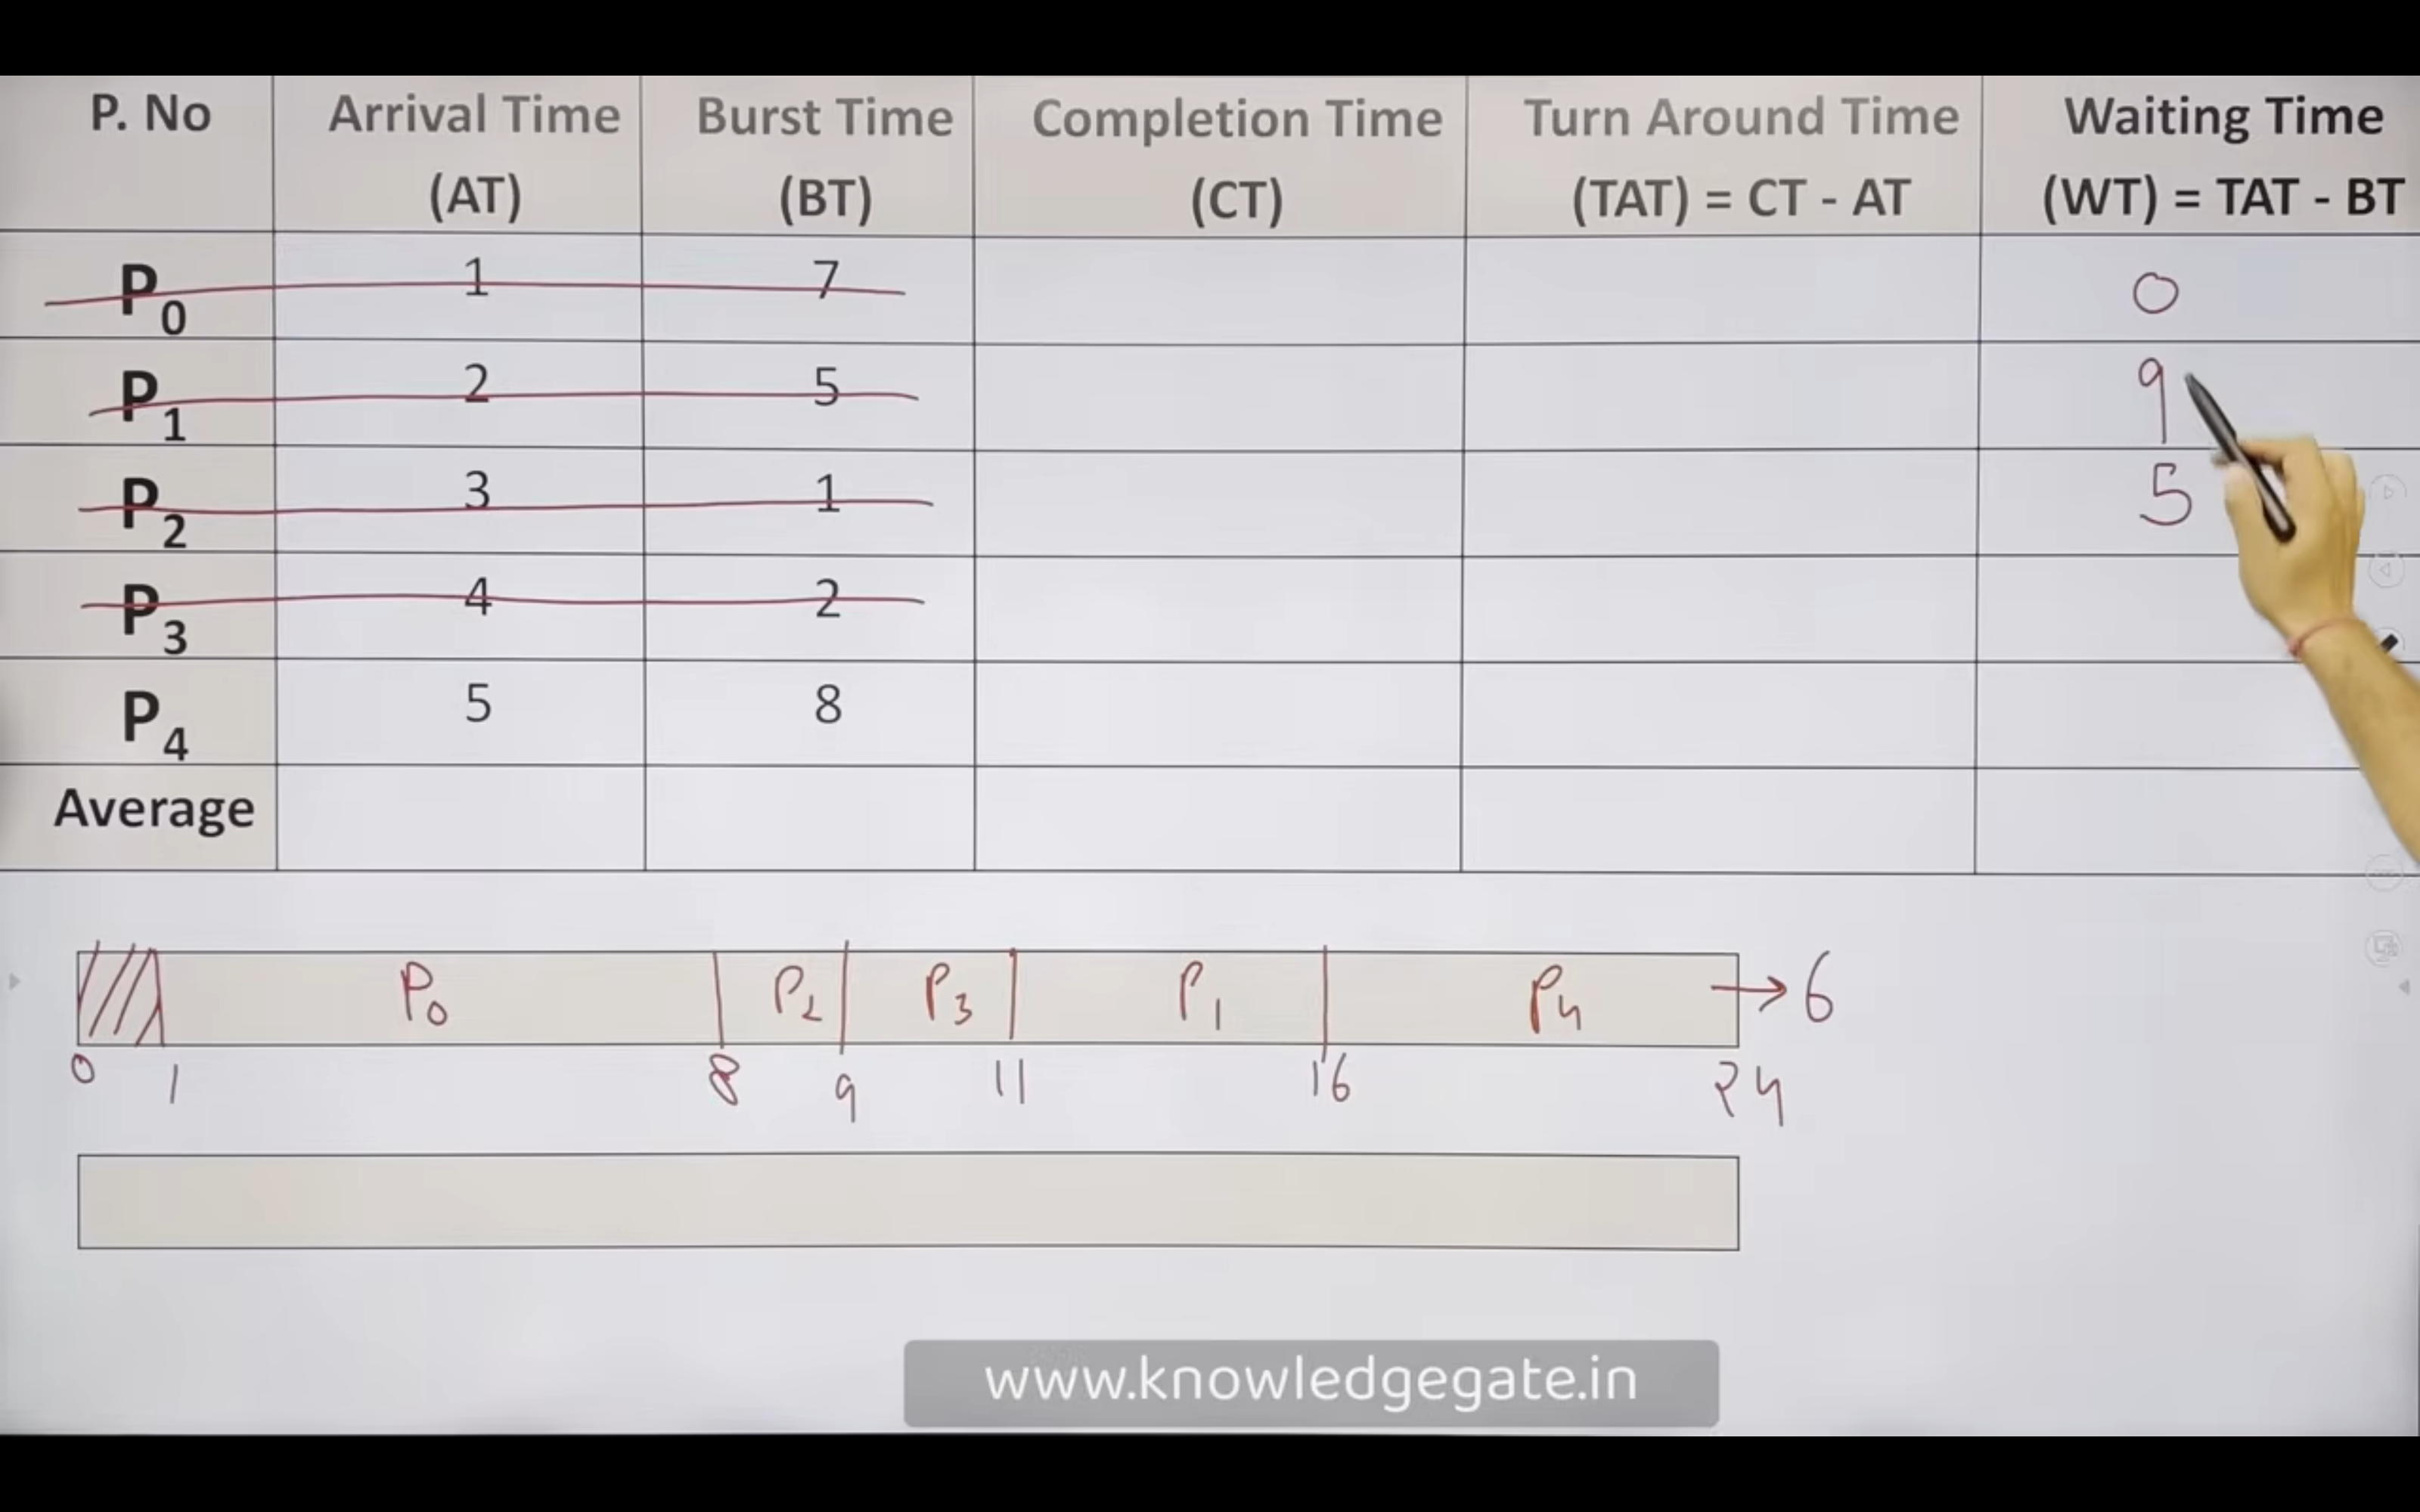 P. No Arrival Time (AT) Burst Time (BT) Completion Time (CT) Turn Around Time (TAT) = CT - AT Waiting Time (WT) = TAT - BT
P0 1 7 0
P1 2 5 9
P2 3 1 5
P3 4 2
P4 5 8
Average
P0 P2 P3 P1 P4 → 6
0 1 8 9 11 16 24
www.knowledgegate.in